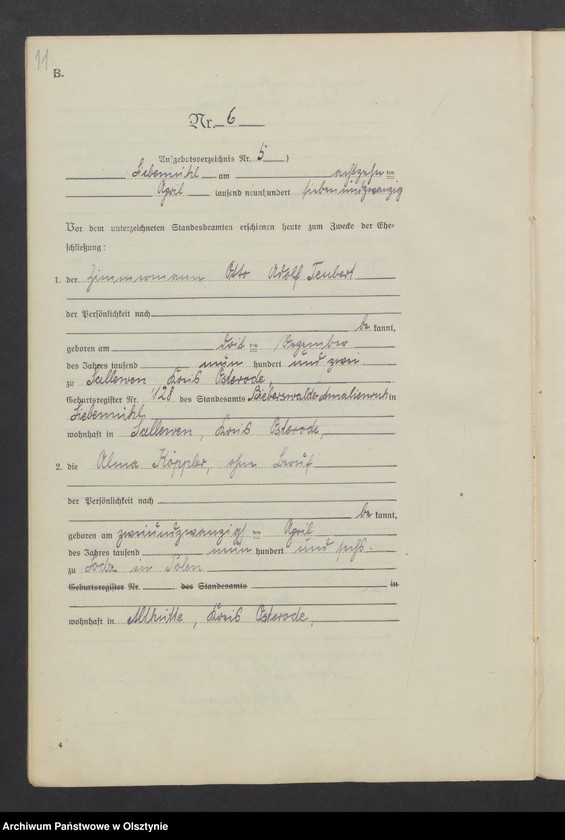 11
B.
Nr. 6
Aufgebotsverzeichnis Nr. 5 )
Liebemühl am achtzehn ten
April tausend neunhundert siebenundzwanzig
Vor dem unterzeichneten Standesbeamten erschienen heute zum Zwecke der Ehe-
schließung:
1. der Zimmermann Otto Adolf Teubert
der Persönlichkeit nach
be kannt,
geboren am drit ten Dezember
des Jahres tausend neun hundert und zwei
zu Sallewen Kreis Osterode,
Geburtsregister Nr. 128 des Standesamts Bieberswalde in
Liebemühl,
wohnhaft in Sallewen, Kreis Osterode,
2. die Alma Köppler, ohne Beruf
der Persönlichkeit nach
be kannt,
geboren am zweiundzwanzigs ten April
des Jahres tausend neun hundert und sechs.
zu Lodz in Polen
Geburtsregister Nr. des Standesamts in
wohnhaft in Althütte, Kreis Osterode,
4
Archiwum Państwowe w Olsztynie